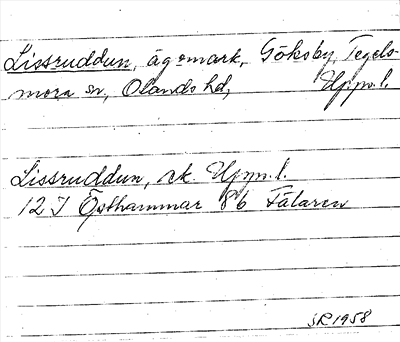 Lissruddun, ägomark, Göksby, Tegels-
mora sn, Olands hd, Upps. l.
Lissruddun, ek. Upps. l.
12 I Östhammar 8b Fälaren
SR 1958